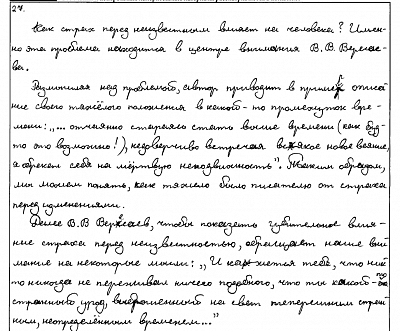 27.
Как страх перед неизвестным влияет на человека? Имен-
но эта проблема находится в центре внимания В.В. Вереса-
ва.
Размышляя над проблемой, автор приводит в пример описа-
ние своего тяжёлого положения в какой-то промежуток вре-
мени: „... отчаянно стараясь стать выше времени (как буд-
то это возможно!), недоверчиво встречая всякое новое веяние,
я обрекаем себя на мёртвую неподвижность". Таким образом,
мы можем понять, как тяжело было писателю от страха
перед изменениями.
Далее В.В Вересаев, чтобы показать губительное влия-
ние страха перед неизвестностью, обращает наше вни
мание на некоторые мысли: „И кажется тебе, что ник
то никогда не переживал ничего подобного, что ты какой-то
странный урод, выброшенный на свет теперешним стран
ным, неопределённым временем..."